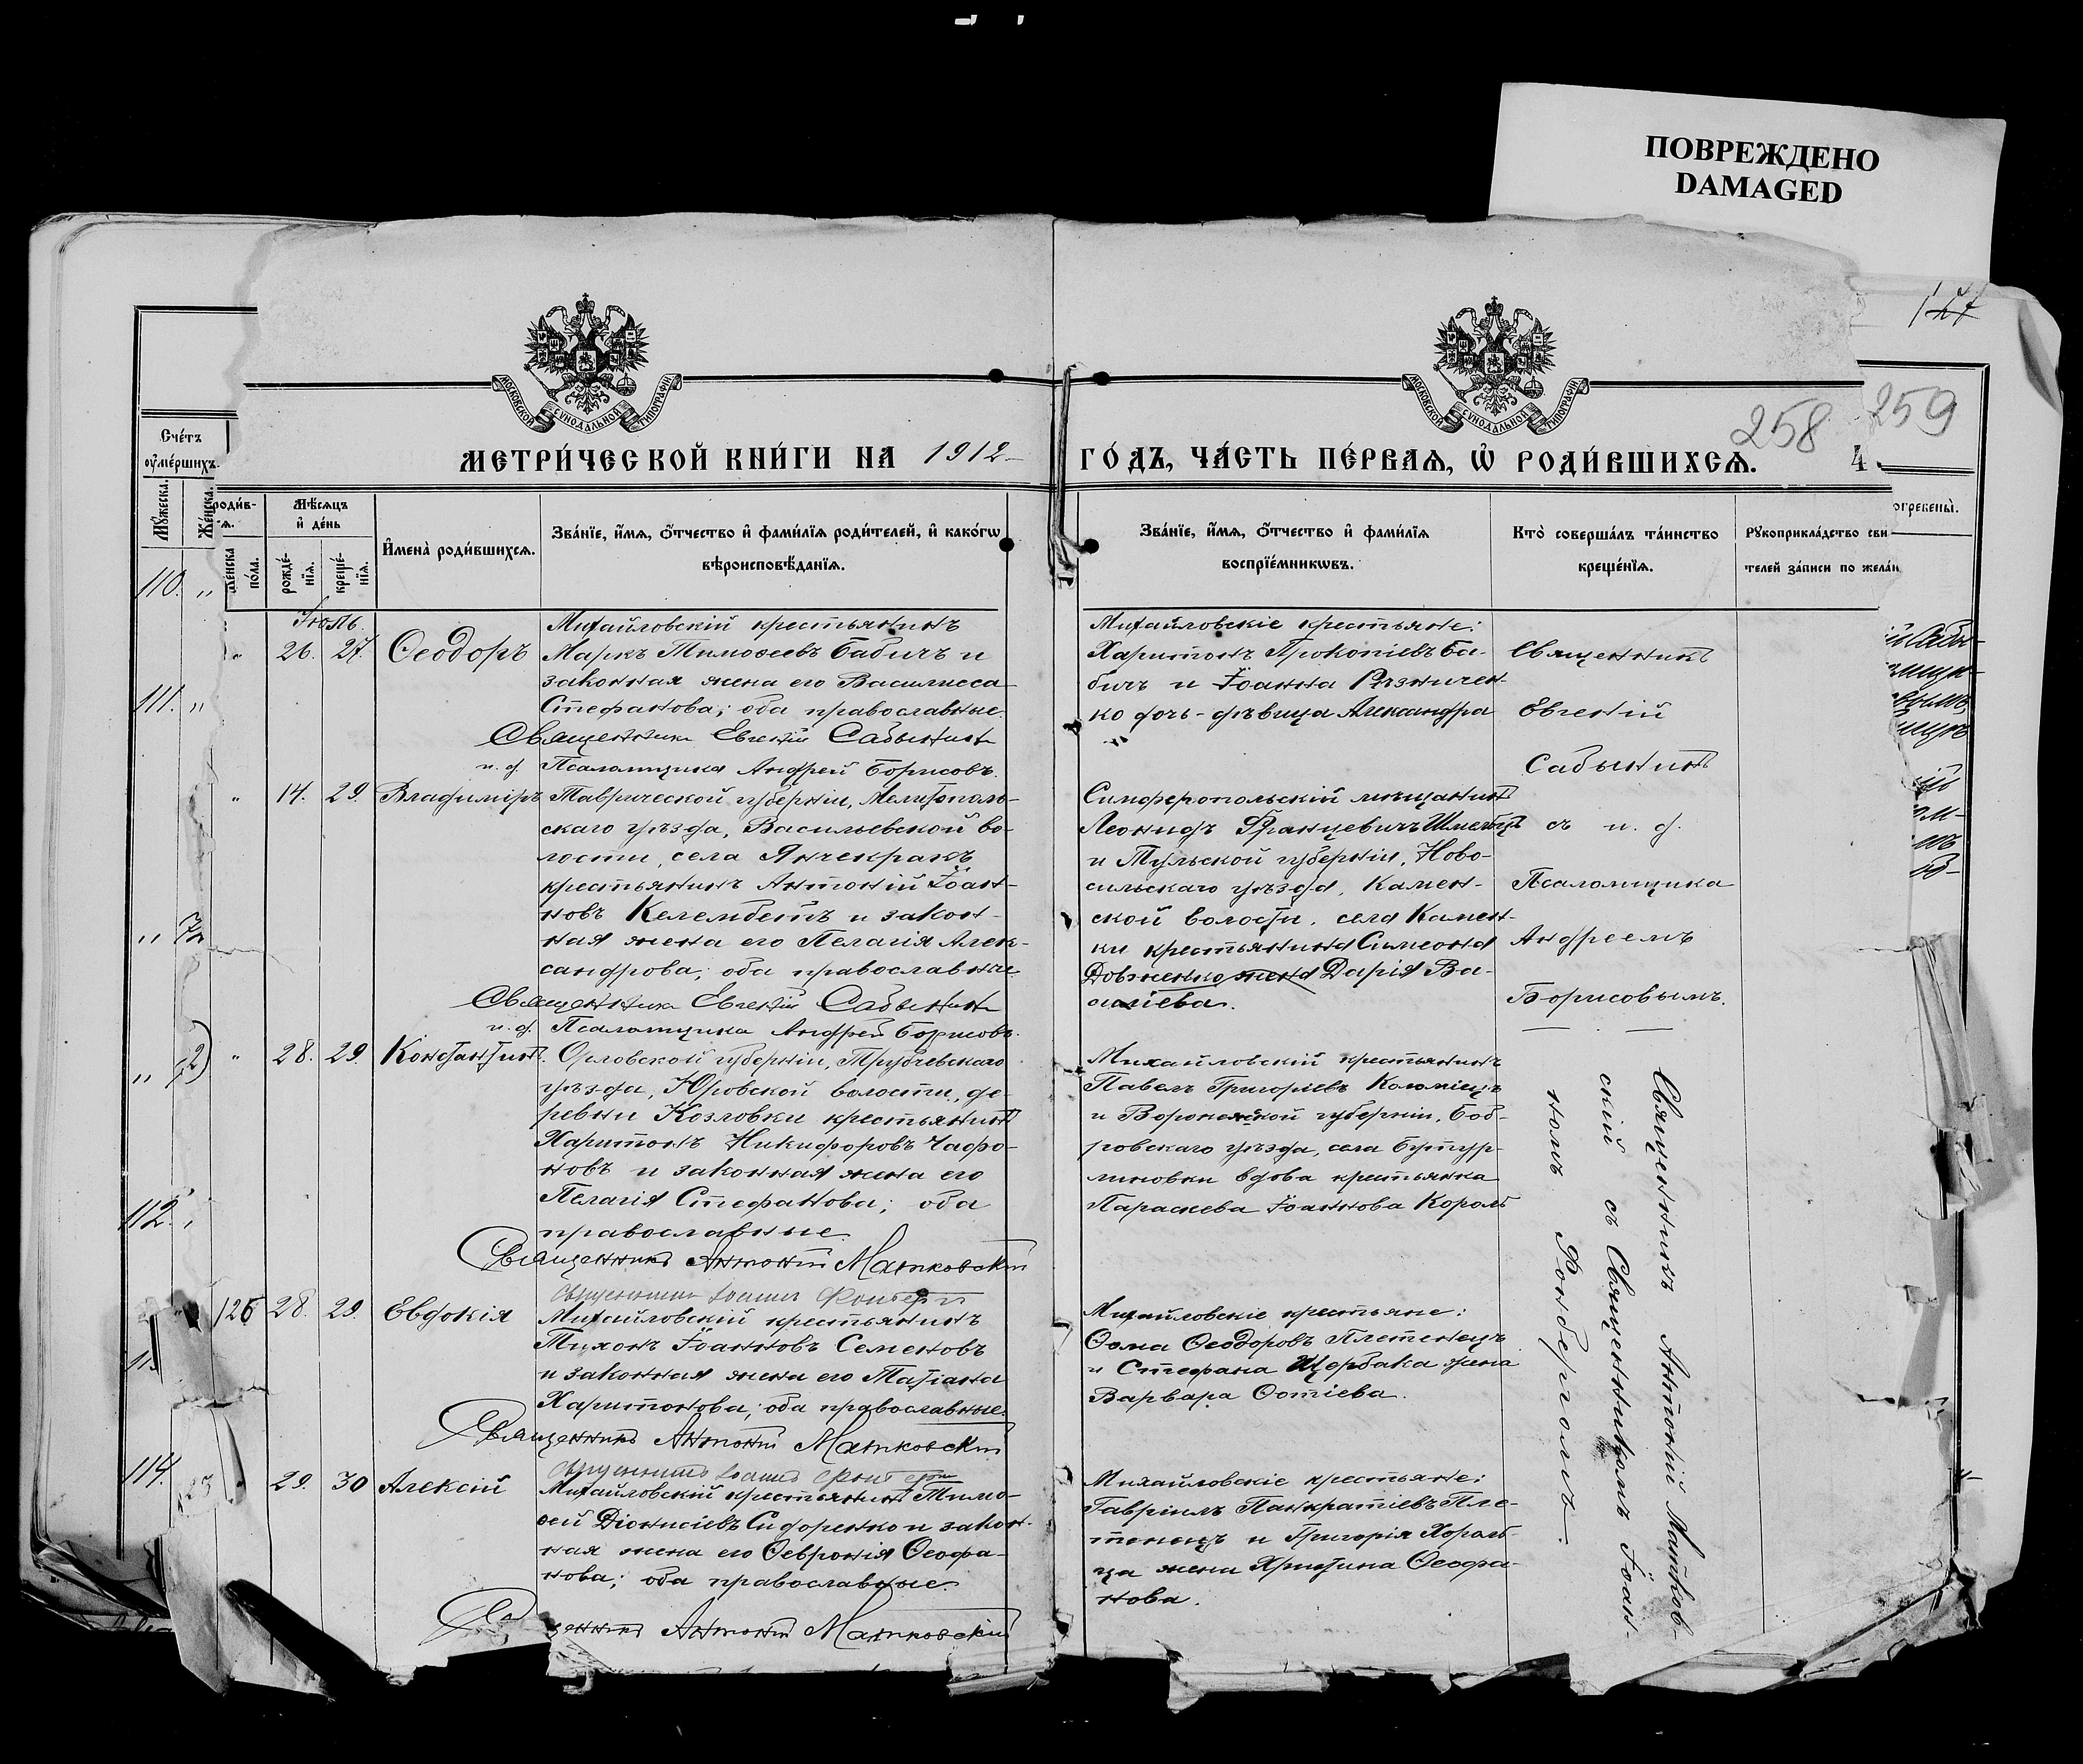 ПОВРЕЖДЕНО
DAMAGED
127
258
259
МОСКОВСКОЙ СѴНОДАЛЬНОЙ ТИПОГРАФІИ
МОСКОВСКОЙ СѴНОДАЛЬНОЙ ТИПОГРАФІИ
МЕТРИ́ЧЕСКОЙ КНИ́ГИ НА 1912
ГО́ДЪ, ЧА́СТЬ ПЕ́РВАѦ, Ѡ҆ РОДИ́ВШИХСѦ.
4
Сче́тъ
ᲂу҆ме́ршихъ.
Мꙋ́жеска.
Же́нска.
роди́в-
Мѣ́сѧцъ
и҆ де́нь
же́нска
по́ла.
рожде́-
нїѧ.
креще́-
нїѧ.
И҆мена̀ роди́вшихсѧ.
Зва́нїе, и҆́мѧ, ѻ҆́тчество и҆ фами́лїѧ роди́телей, и҆ како́гѡ
вѣроисповѣ́данїѧ.
Зва́нїе, и҆́мѧ, ѻ҆́тчество и҆ фами́лїѧ
воспрїе́мникѡвъ.
Кто̀ соверша́лъ та́инство
креще́нїѧ.
Рꙋкоприкла́дство сви-
телей за́писи по жела́н
огребены̀.
110. "
111. "
112.
114.
Іюль.
26. 27. Ѳеодоръ
Михайловскій крестьянинъ
Маркъ Тимоѳеевъ Бабичъ и
законная жена его Василисса
Стефанова; оба православные.
Священникъ Евгеній Сабынинъ
и. д. Псаломщика Андрей Борисовъ.
Михайловскіе крестьяне:
Харитонъ Прокопіевъ Ба-
бичъ и Іоанна Рѣзничен-
ко дочь-дѣвица Александра
Священникъ
Евгеній
Сабынинъ
съ и. д.
Псаломщика
Андреемъ
Борисовымъ.
14. 29. Владиміръ
Таврической губерніи, Мелитополь-
скаго уѣзда, Васильевской во-
лости, села Янчекракъ
крестьянинъ Антоній Іоан-
новъ Келембетъ и закон-
ная жена его Пелагія Алек-
сандрова; оба православные
Священникъ Евгеній Сабынинъ
и. д. Псаломщика Андрей Борисовъ.
Симферопольскій мѣщанинъ
Леонидъ Францевичъ
и Тульской губерніи, Ново-
сильскаго уѣзда, Камен-
ской волости, села Камен-
ки крестьянина Симеона
Довженко жена Дарія Ва-
силіева.
28. 29. Константинъ.
Орловской губерніи, Трубчевскаго
уѣзда, Юровской волости, де-
ревни Козловки крестьянинъ
Харитонъ Никифоровъ Чафо-
новъ и законная жена его
Пелагія Стефанова; оба
православные
Священникъ Антоній Матковскій
Михайловскій крестьянинъ
Павелъ Григоріевъ Коломіецъ
и Воронежской губерніи, Боб-
ровскаго уѣзда, села Бутур-
линовки вдова крестьянка
Параскева Іоаннова Король
Священникъ Антоній Матков-
скій съ Священникомъ Іоан-
номъ Фонбергомъ.
126 28. 29. Евдокія
Священникъ Іоаннъ Фонбергъ
Михайловскій крестьянинъ
Тихонъ Іоанновъ Семеновъ
и законная жена его Татіана
Харитонова; оба православные.
Священникъ Антоній Матковскій
Михайловскіе крестьяне:
Ѳома Ѳеодоровъ Плетенецъ
и Стефана Щербака жена
Варвара Фотіева.
29. 30 Алексій
Священникъ Іоаннъ Фонбергъ
Михайловскій крестьянинъ Тимо-
ѳей Діонисіевъ Сидоренко и закон-
ная жена его Ѳевронія Ѳеофа-
нова; оба православные.
Антоній Матковскій
Михайловскіе крестьяне:
Гавріилъ Панкратіевъ Пле-
тенецъ и Григорія Хораль-
ца жена Христина Ѳеофа-
нова.